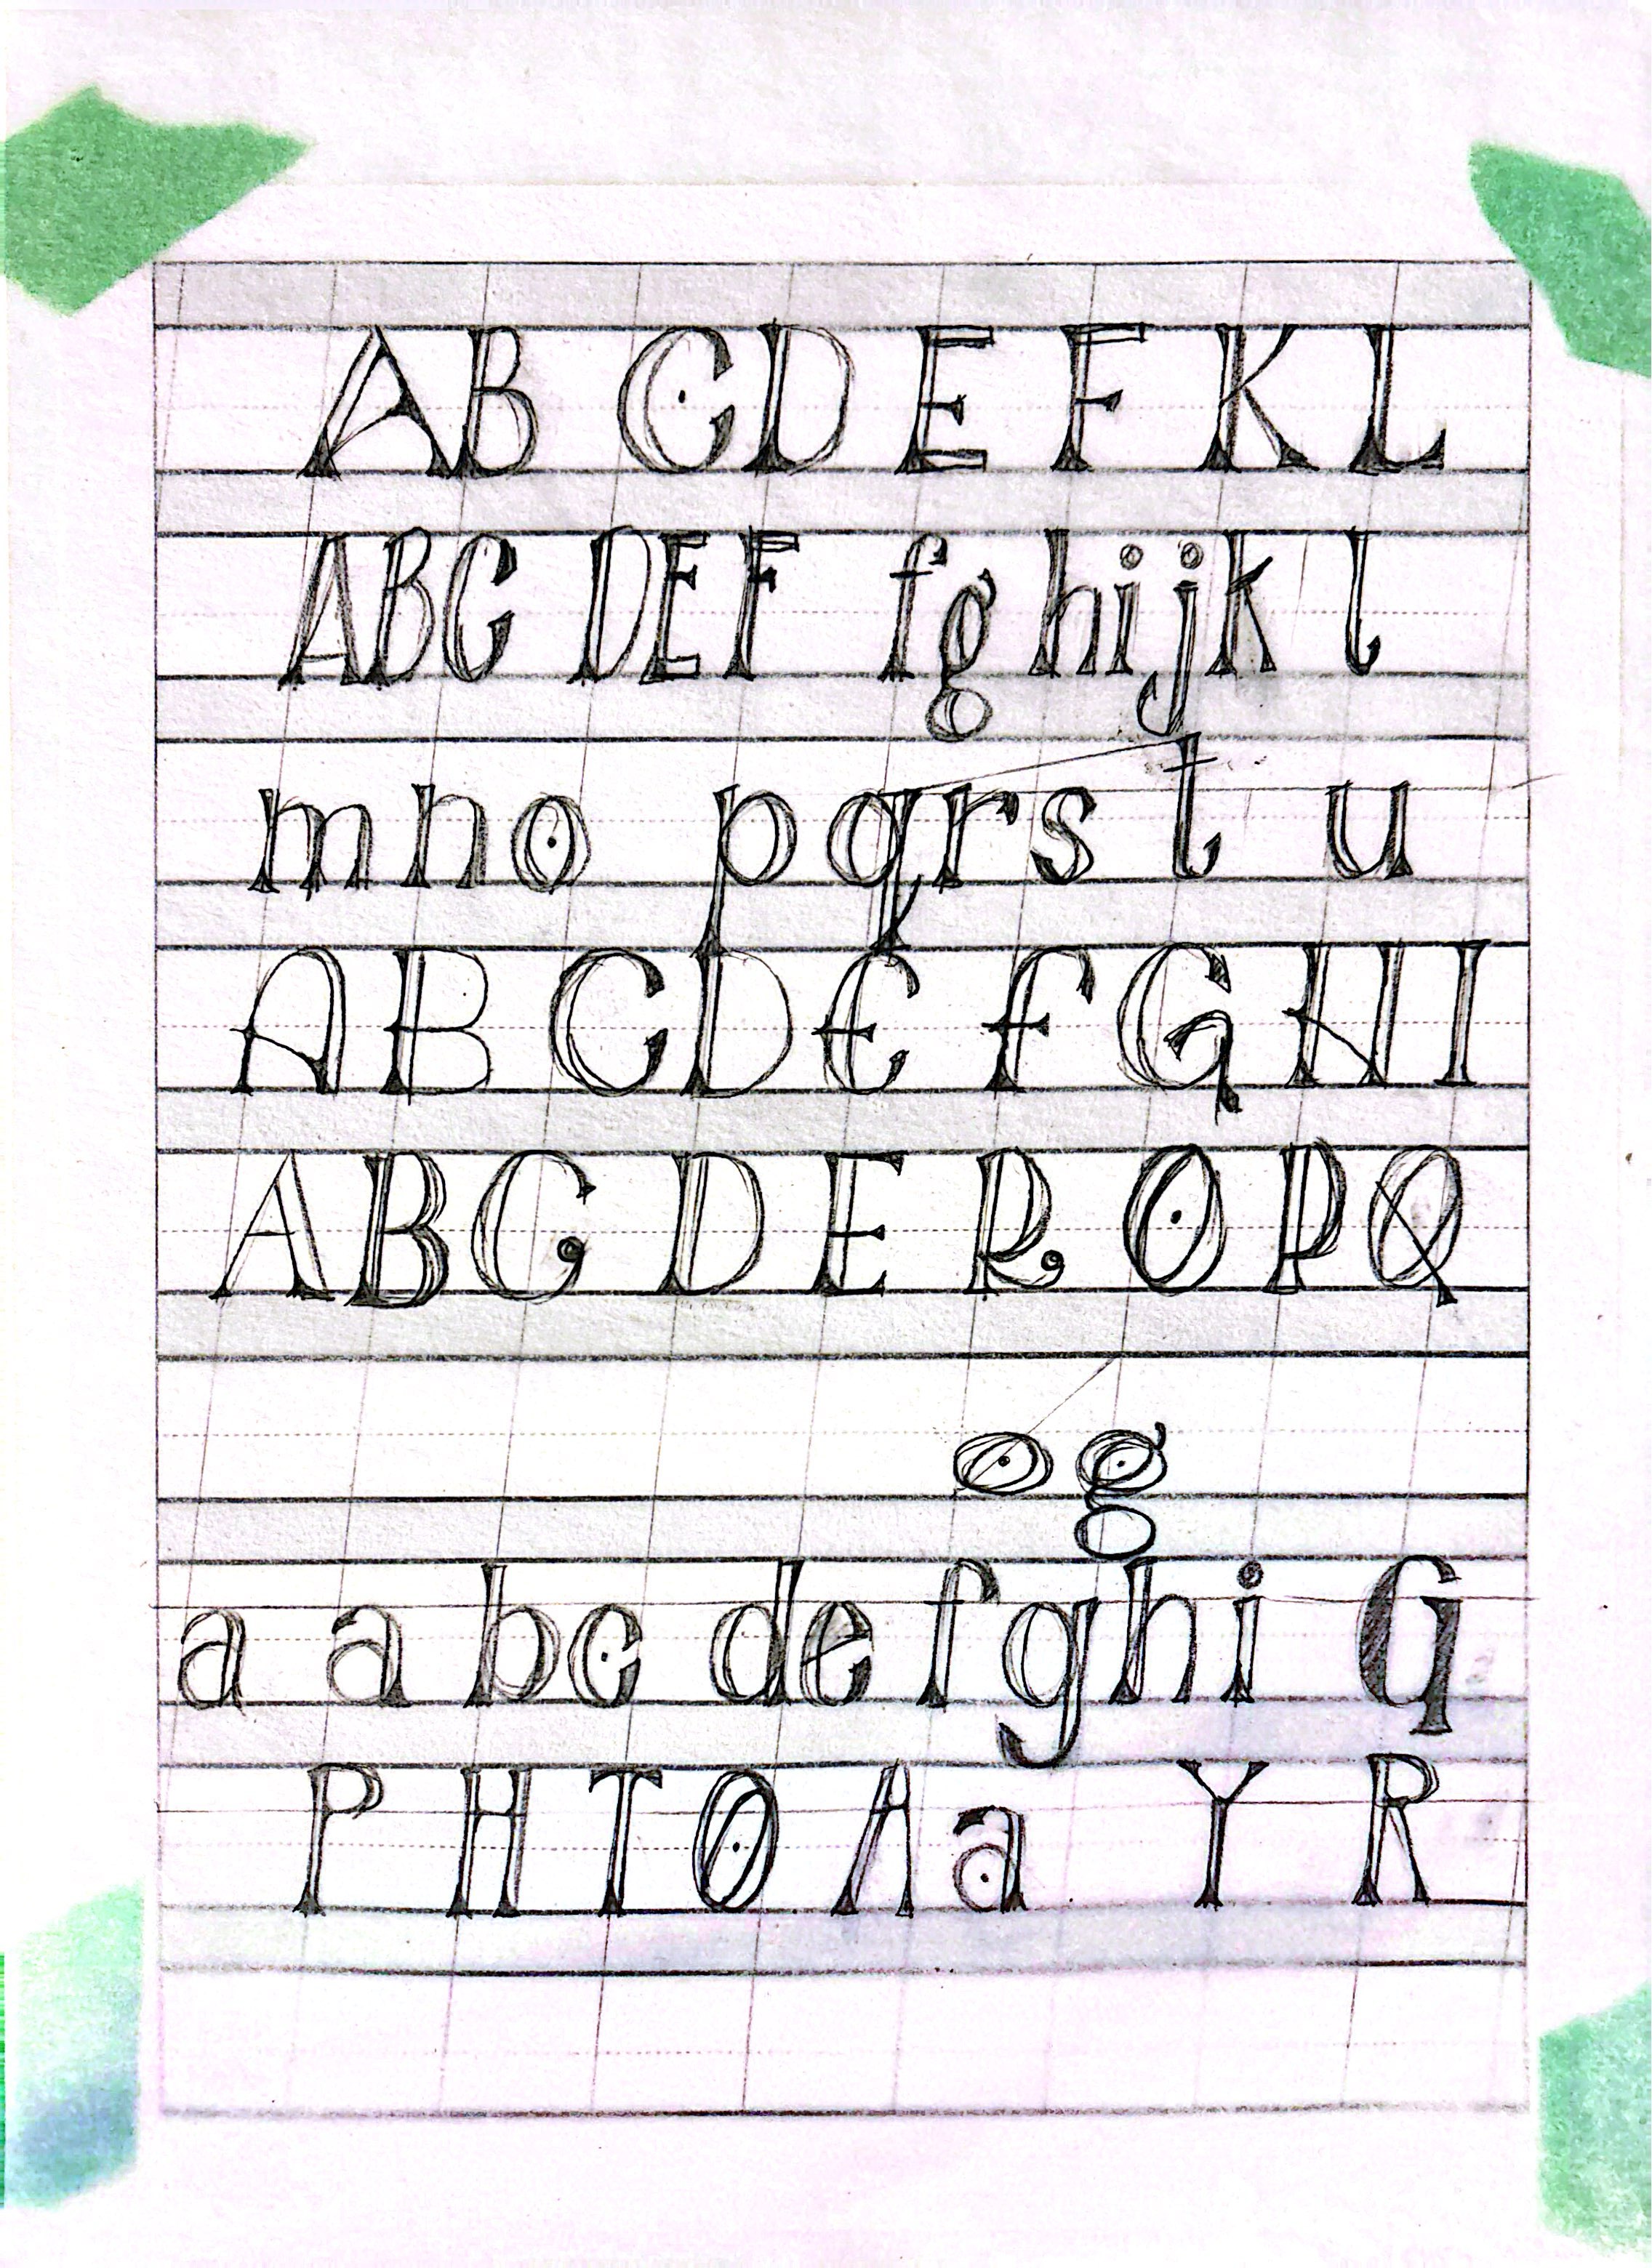 AB CD E F K L
ABC DEF fg hijk l
mno pqrst u
A B C D E F G H I
A B C D E R O P Q
o g
a a bc de fghi G
P H T O A a Y R